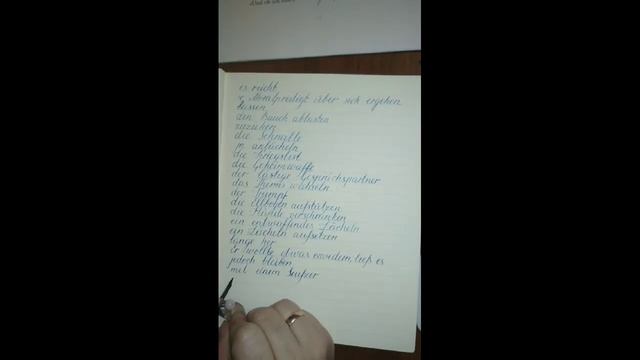 es reicht
e. Moralpredigt über sich ergehen
lassen
den Bauch abtasten
zuziehen
die Schnalle
jn anlächeln
die Kriegslist
die Geheimwaffe
der lästige Gesprächspartner
das Thema wechseln
der Trumpf
die Ellbogen aufstützen
die Hände verschränken
ein entwaffnendes Lächeln
ein Lächeln aufsetzen
lange her
Er wollte etwas erwidern, ließ es
jedoch bleiben
mit einem Seufzer